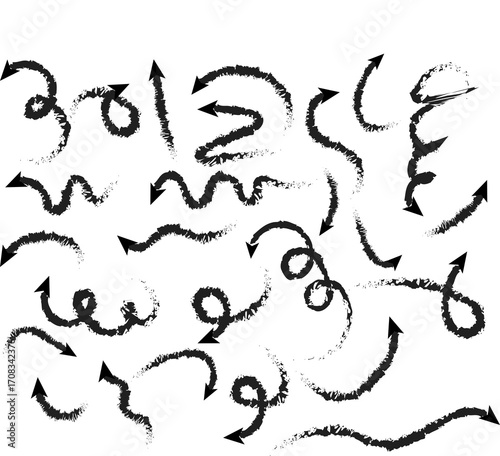 Adobe Stock | #1708342376